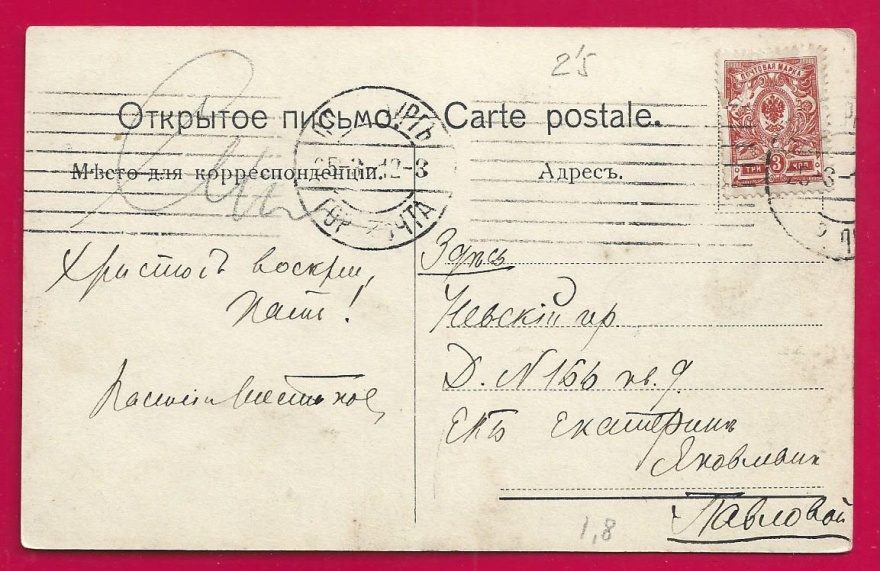 25
Открытое письмо. Carte postale.
ПОЧТОВАЯ МАРКА
ТРИ 3 КОП.
Мѣсто для корреспонденціи.
Адресъ.
25-3 12-3
ГОР ПОЧТА
Христосъ воскресе,
Здѣсь
Невскій пр.
Д. N 166 кв. 9.
ЕВБ Екатеринѣ
Яковлевнѣ
Павловой
1,8